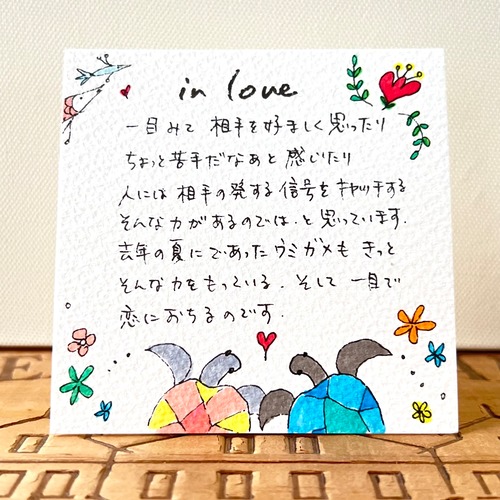 in love
一目みて 相手を好ましく思ったり
ちょっと苦手だなあと 感じたり
人には 相手の発する 信号をキャッチする
そんな力があるのでは、と思っています.
去年の夏にであったウミガメも きっと
そんな力をもっている. そして 一目で
恋におちるのです.